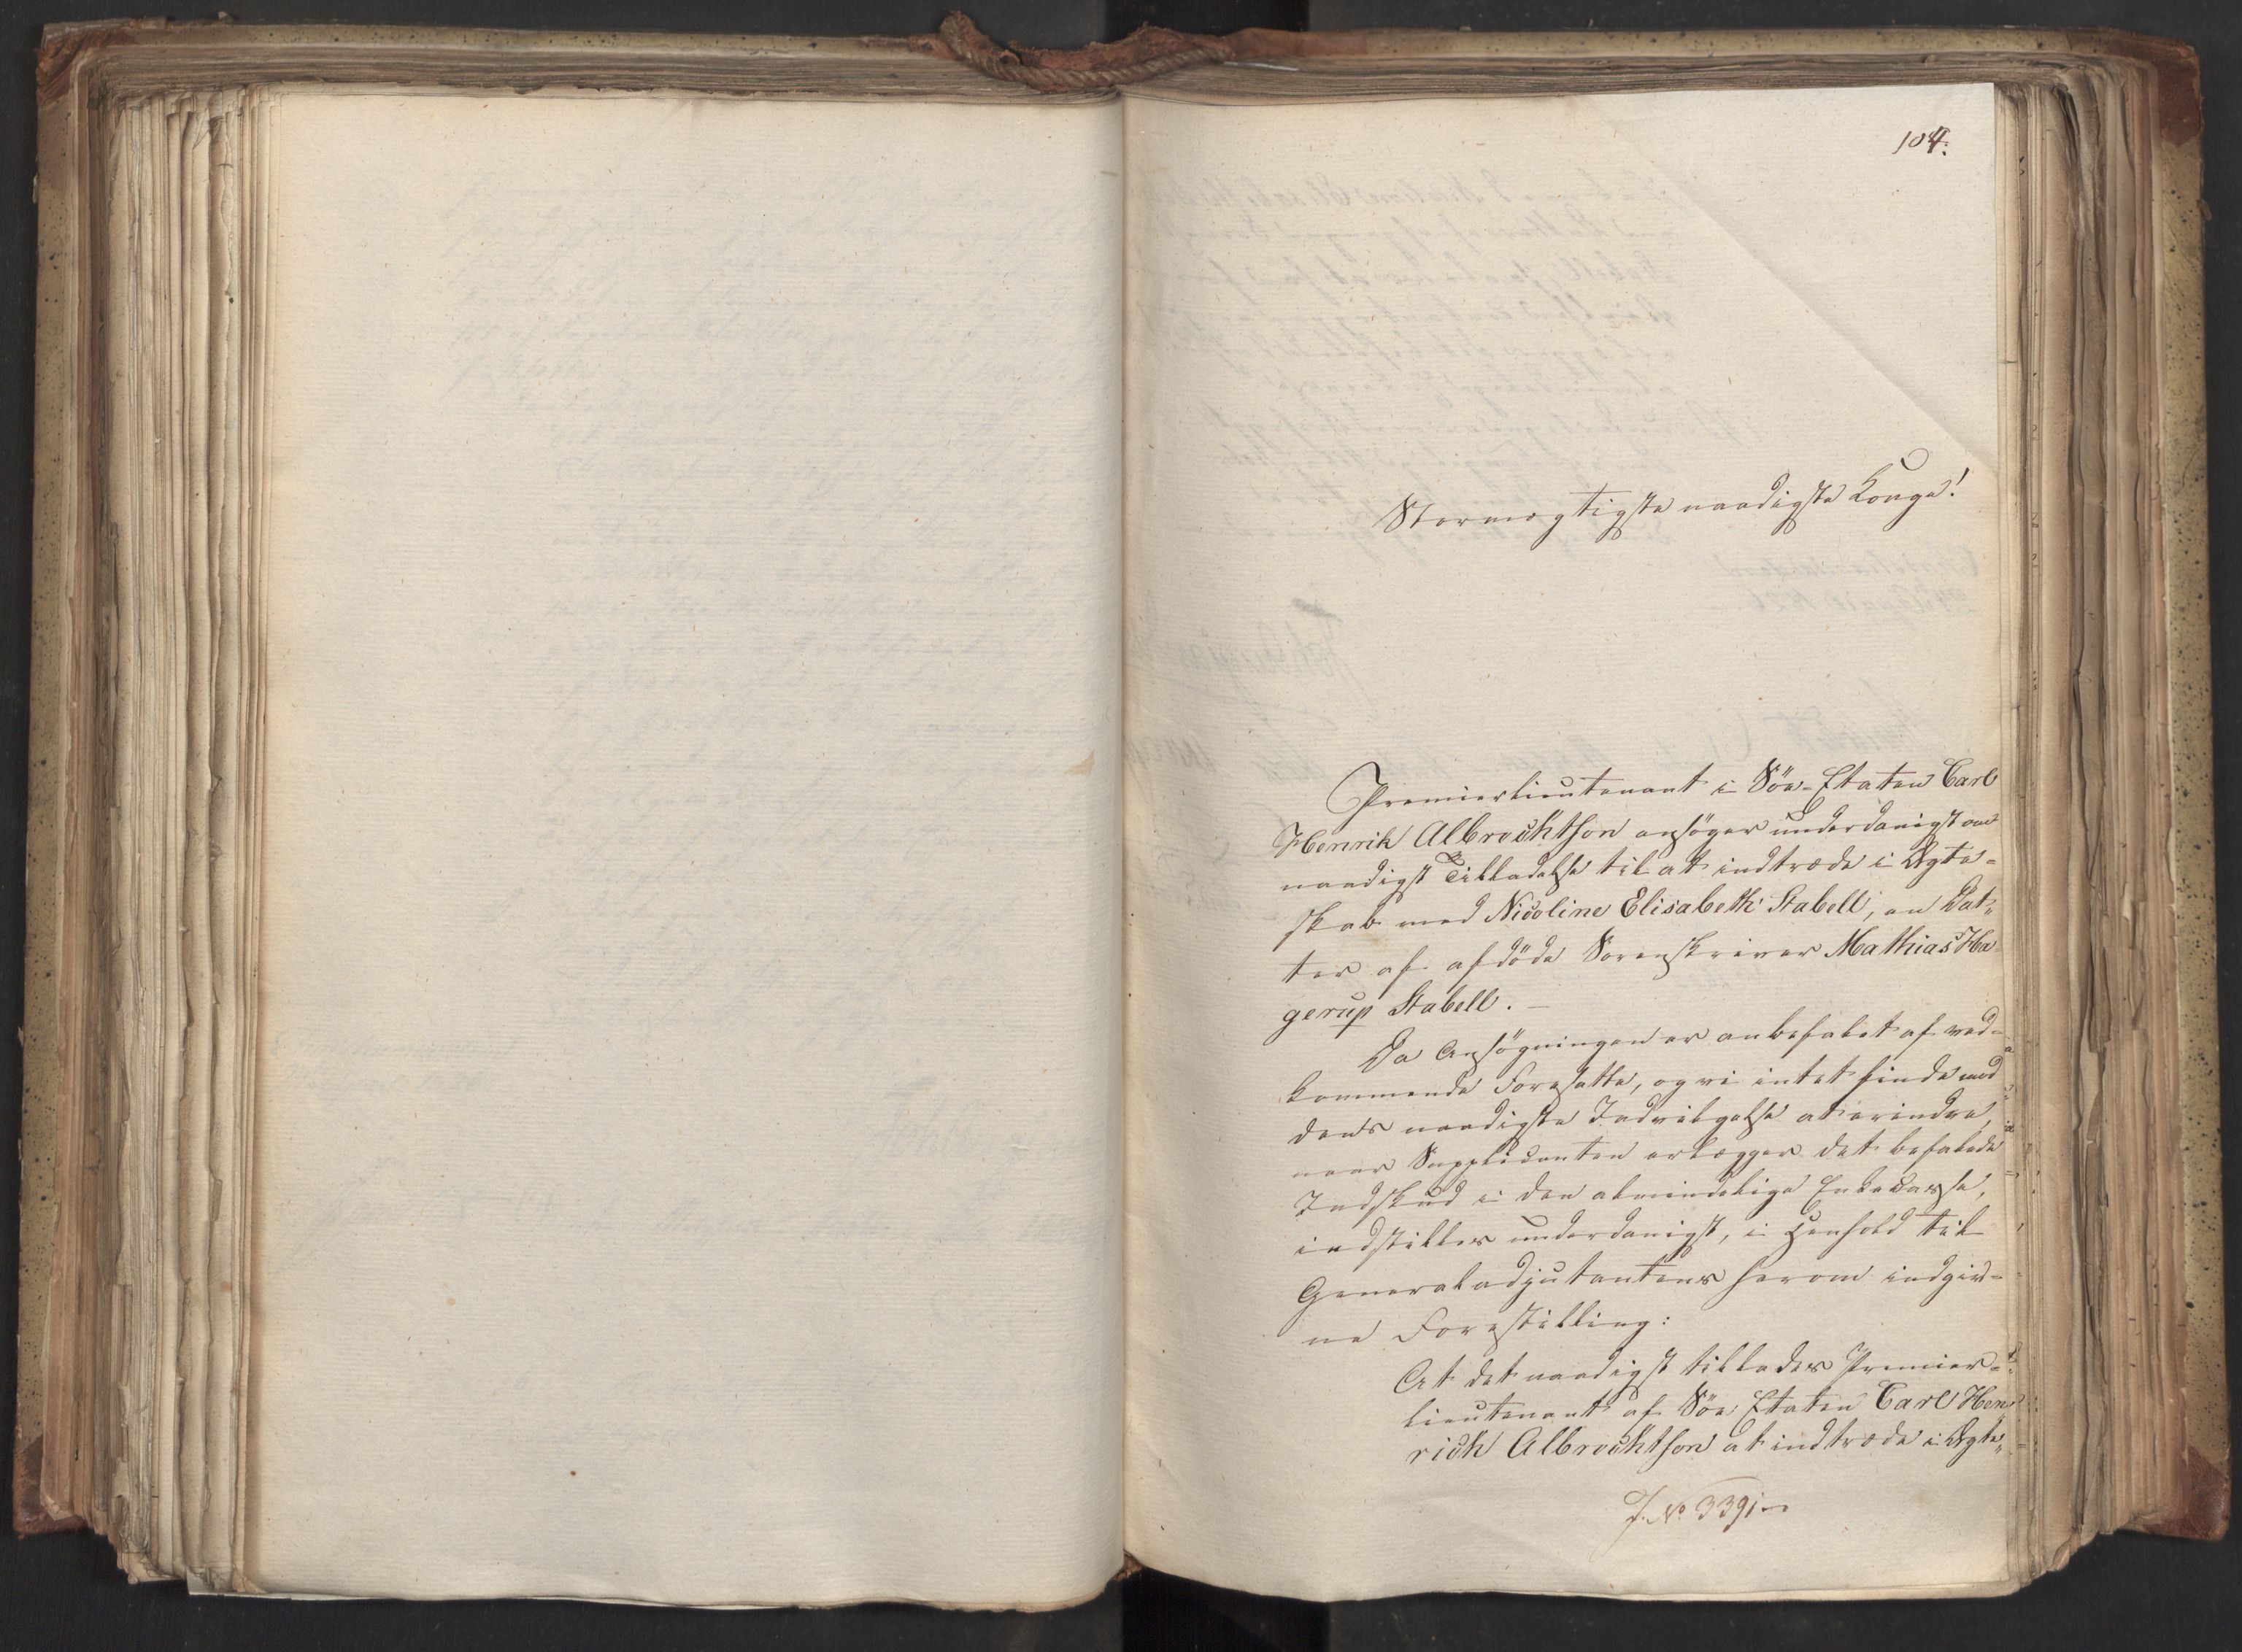 104.
Stormægtigste naadigste Konge!
Premierlieutenant i Söe-Etaten Carl
Henrik Albrechtson ansöger underdanigst om
naadigst Tilladelse til at indtræde i Ægte-
skab med Nicoline Elisabeth Stabell, en Dat-
ter af afdöde Sorenskriver Mathias Ha-
gerup Stabell. –
Da Ansögningen er anbefalet af ved-
kommende Foresatte, og vi intet finde mod
dens naadigste Indvilgelse at erindre,
naar Supplicanten erlægger det befalede
Indskud i den almindelige Enkecasse,
indstilles underdanigst, i Henhold til
Generaladjutantens herom indgiv-
ne Forestilling:
At det naadigst tillades Premier-
lieutenant af Söe Etaten Carl Hen
rich Albrechtson at indtræde i Ægte-
J. No 3391